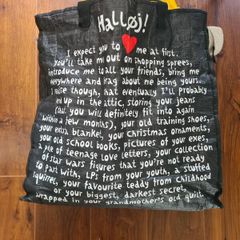 Halløj!
I expect you to ♥ me at first.
You'll take me out on shopping sprees,
introduce me to all your friends, bring me
everywhere and rag about me being yours.
I use though, hat eventually I'll probably
up in the attic, storing your jeans
(at you will definitely fit into again
within a few months), your old training shoes,
your extra blanket, your christmas ornaments,
our old school books, pictures of your exes,
pile of teenage love letters, your collection
of star wars figures that you're not ready
to part with, LPs from your youth, a stuffed
squirrel, your favourite teddy from childhood
or your biggest, darkest secret,
wrapped in your grandmother's old quilt.